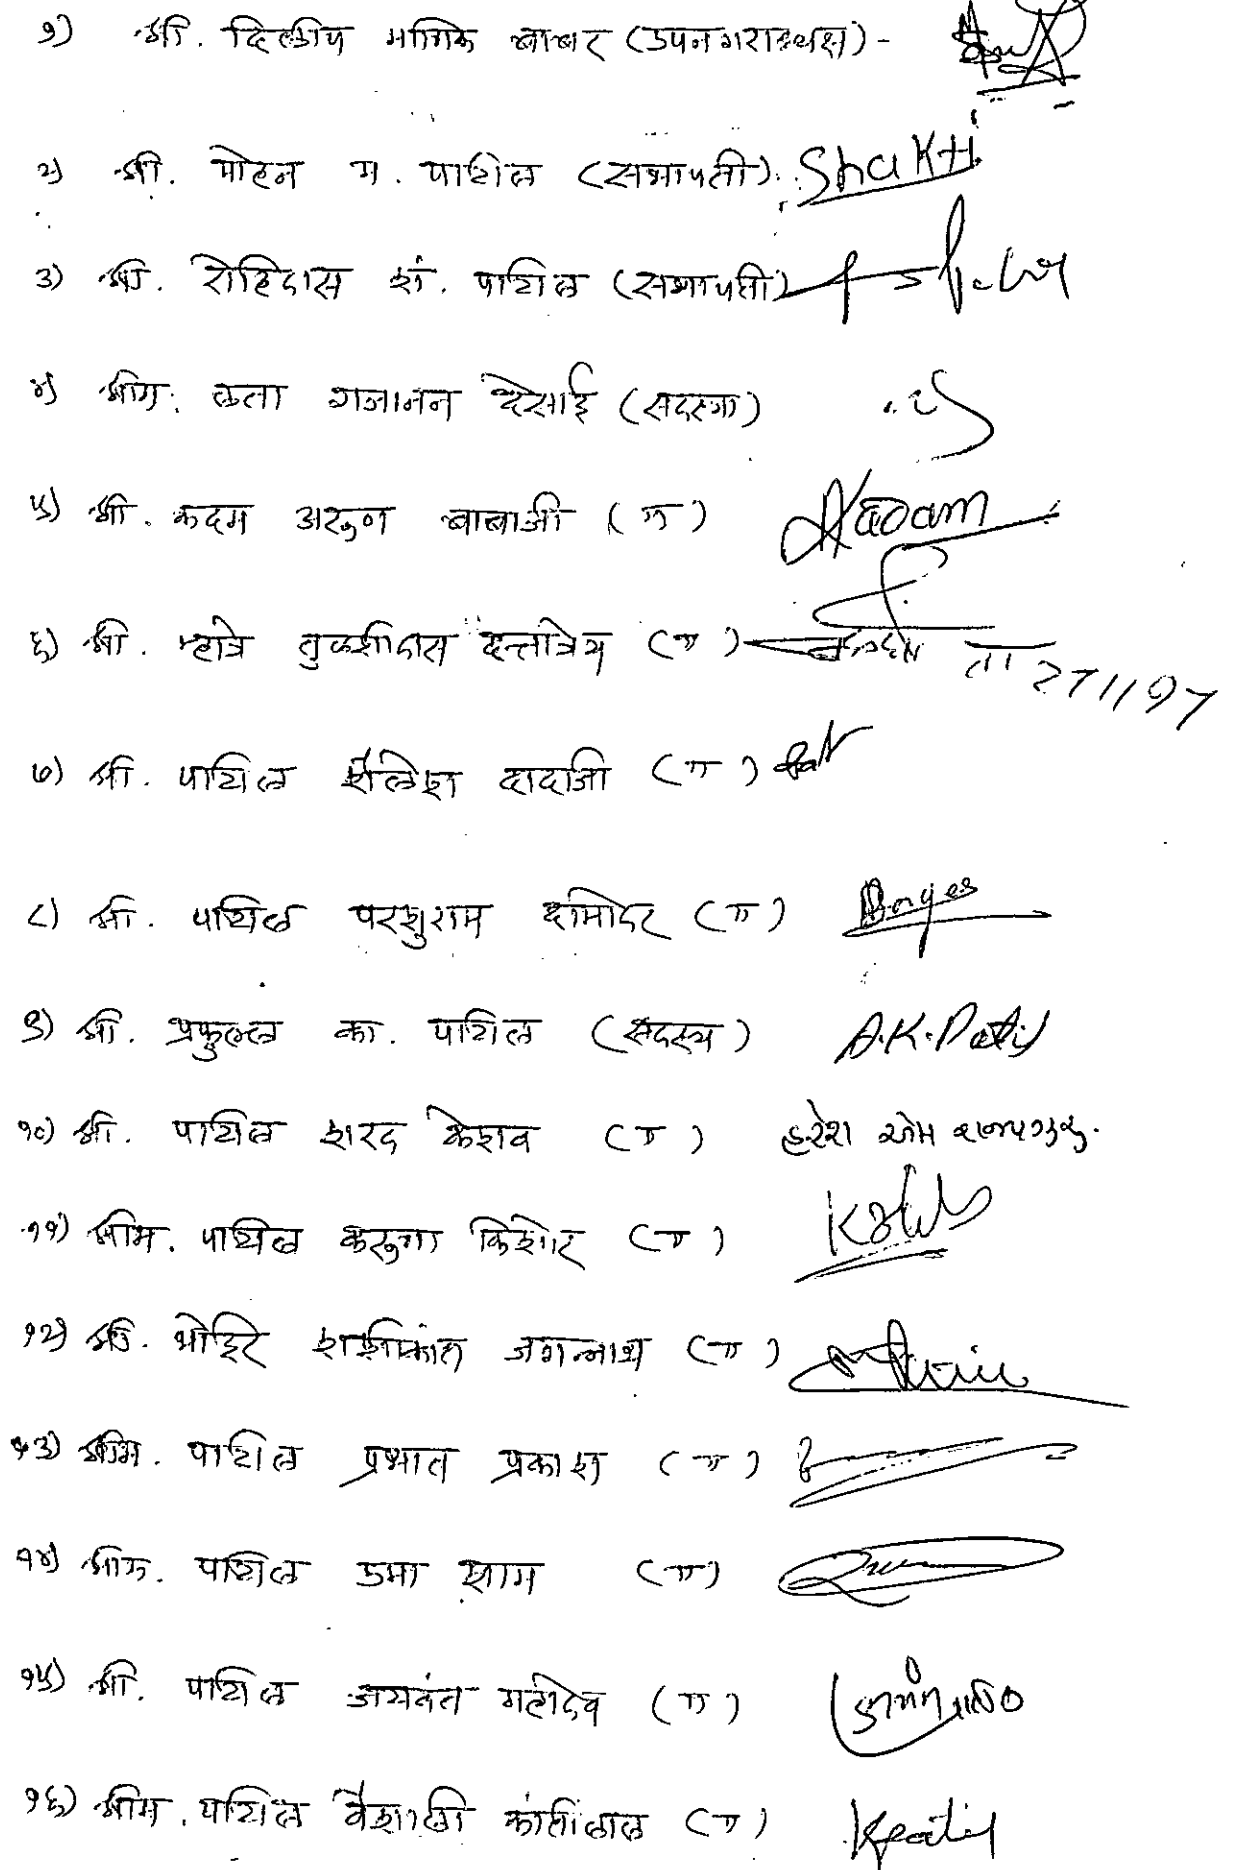 १) श्री. दिलीप माणिक बाबर (उपनगराध्यक्ष) -
२) श्री. मोहन म. पाटील (सभापती) Shakti
३) श्री. रोहिदास शं. पाटील (सभापती)
४) श्रीम. लता गजानन देसाई (सदस्या)
५) श्री. कदम अरुण बाबाजी ( " ) Kadam
६) श्री. म्हात्रे तुळशीदास दत्तात्रेय ( " )
७) श्री. पाटील शैलेश दादाजी ( " )
८) श्री. पाटील परशुराम दामोदर ( " )
९) श्री. प्रफुल्ल का. पाटील (सदस्य) A.K. Patil
१०) श्री. पाटील शरद केशव ( " ) हरेश
११) श्रीम. पाटील करुणा किशोर ( " )
१२) श्री. भोईर शशीकांत जगन्नाथ ( " )
१३) श्रीम. पाटील प्रभात प्रकाश ( " )
१४) श्रीम. पाटील उमा श्याम ( " )
१५) श्री. पाटील जयवंत महादेव ( " )
१६) श्रीम. पाटील वैशाली कांतीलाल ( " ) Kpatil